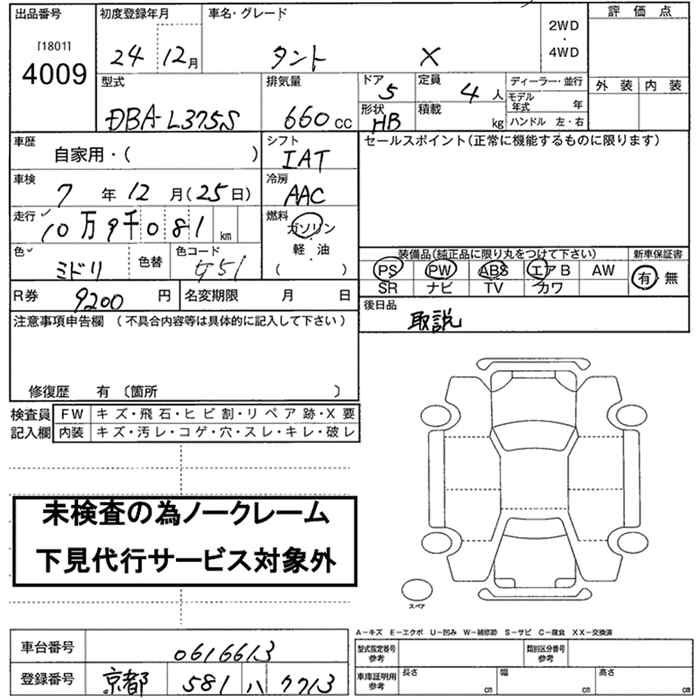 出品番号 初度登録年月 車名・グレード 評価点
[1801] 4009 24 12月 タント X 2WD・4WD
外装 内装
型式 排気量 ドア 定員 ディーラー・並行
DBA-L375S 660cc 5 4人 モデル年式 年
形状 積載 ハンドル 左・右
HB kg
車歴 シフト セールスポイント(正常に機能するものに限ります)
自家用・( ) IAT
車検 冷房
7年12月(25日) AAC
走行 燃料
10万9千081km ガソリン・軽油
( )
色 色替 色コード 装備品(純正品に限り丸をつけて下さい) 新車保証書
ミドリ PS PW ABS エアB AW 有・無
SR ナビ TV カワ
R券 9200円 名変期限 月 日 後日品
取説
注意事項申告欄 (不具合内容等は具体的に記入して下さい)
修復歴 有 (箇所 )
検査員 FW キズ・飛石・ヒビ割・リペア跡・X要
記入欄 内装 キズ・汚レ・コゲ・穴・スレ・キレ・破レ
未検査の為ノークレーム
下見代行サービス対象外
スペア
A-キズ E-エクボ U-凹み W-補修跡 S-サビ C-腐食 XX-交換済
車台番号 0616613 型式指定番号 参考 類別区分番号 参考
登録番号 京都 581 ハ 7713 車庫証明用 参考 長さ cm 幅 cm 高さ cm